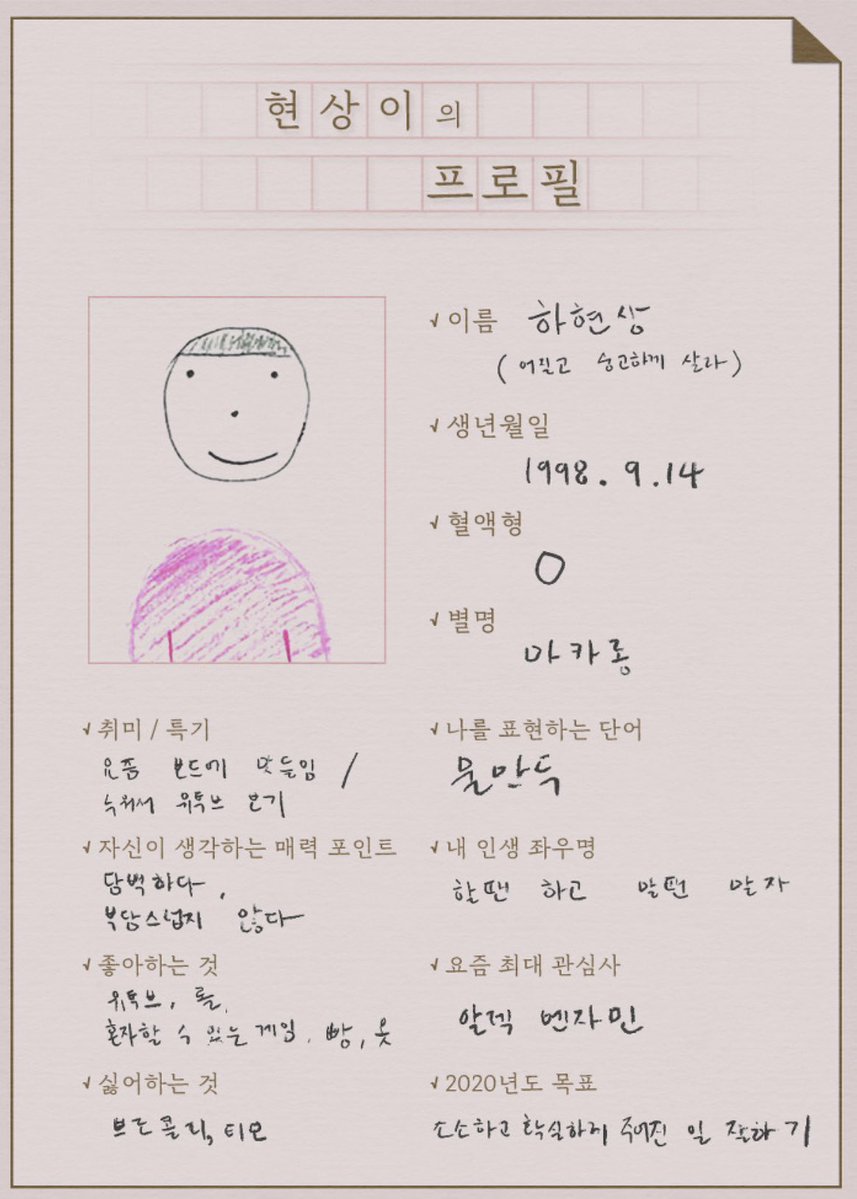 현상이의
프로필
✓ 이름 하현상
(어질고 숭고하게 살라)
✓ 생년월일
1998. 9. 14
✓ 혈액형
O
✓ 별명
마카롱
✓ 취미 / 특기
요즘 보드에 맛들임 /
누워서 유튜브 보기
✓ 자신이 생각하는 매력 포인트
담백하다,
부담스럽지 않다
✓ 좋아하는 것
유튜브, 롤,
혼자할 수 있는 게임, 빵, 옷
✓ 싫어하는 것
브로콜리, 티모
✓ 나를 표현하는 단어
물만두
✓ 내 인생 좌우명
할땐 하고 말땐 말자
✓ 요즘 최대 관심사
알렉 벤자민
✓ 2020년도 목표
소소하고 확실하게 주어진 일 잘하기